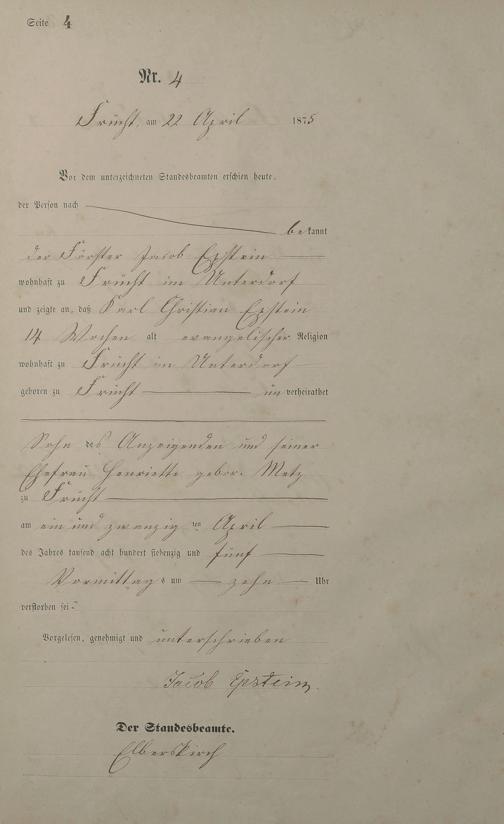 Seite 4
Nr. 4
Frücht, am 22 April 1875
Vor dem unterzeichneten Standesbeamten erschien heute,
der Person nach
bekannt
der Förster Jacob Epstein
wohnhaft zu Frücht im Unterdorf
und zeigte an, daß Karl Christian Epstein
14 Wochen alt evangelischer Religion
wohnhaft zu Frücht im Unterdorf
geboren zu Frücht unverheirathet
Sohn des Anzeigenden und seiner
Ehefrau Henriette gebor. Metz
zu Frücht
am ein und zwanzig ten April
des Jahres tausend acht hundert siebenzig und fünf
Vormittags um zehn Uhr
verstorben sei.
Vorgelesen, genehmigt und unterschrieben
Jacob Epstein.
Der Standesbeamte.
Elberskirch